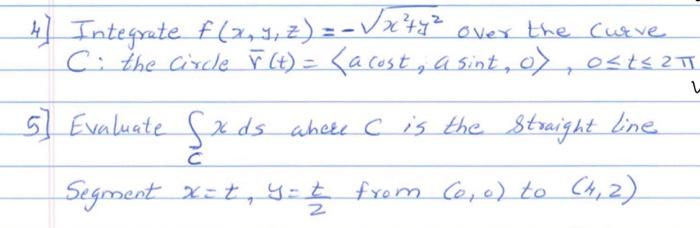 4] Integrate f(x, y, z) = -√x²+y² over the curve
C: the circle r̄(t) = ⟨a cost, a sint, 0⟩, 0≤t≤2π
5] Evaluate ∫_C x ds where C is the straight line
Segment x=t, y=t/2 from (0,0) to (4,2)